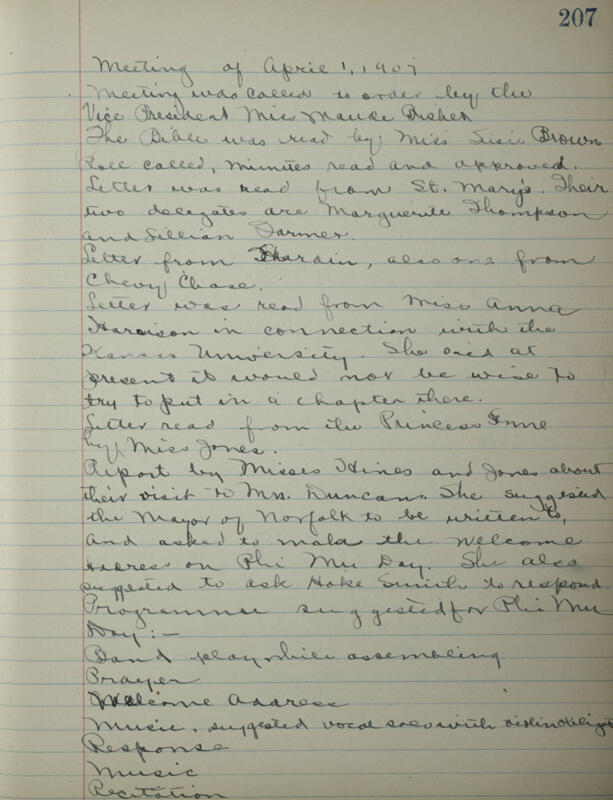 207
Meeting of April 1, 1907
Meeting was called to order by the
Vice President Miss Maude
The Bible was read by Miss Susie Brown
Roll called, minutes read and approved.
Letter was read from St. Mary's. Their
two delegates are Marguerite Thompson
and Lillian Farmer.
Letter from Hardin, also one from
Chevy Chase.
Letter was read from Miss Anna
Harrison in connection with the
Kansas University. She said at
present it would not be wise to
try to put in a chapter there.
Letter read from the Princess Anne
by Miss Jones.
Report by Misses Hines and Jones about
their visit to Mrs. Duncan. She suggested
the Mayor of Norfolk to be written to,
and asked to make the welcome
address on Phi Mu Day. She also
suggested to ask Hoke Smith to respond.
Programme suggested for Phi Mu
Day:-
Band play while assembling
Prayer
Welcome Address
Music, suggested vocal solo with violin obligato
Response
Music
Recitation